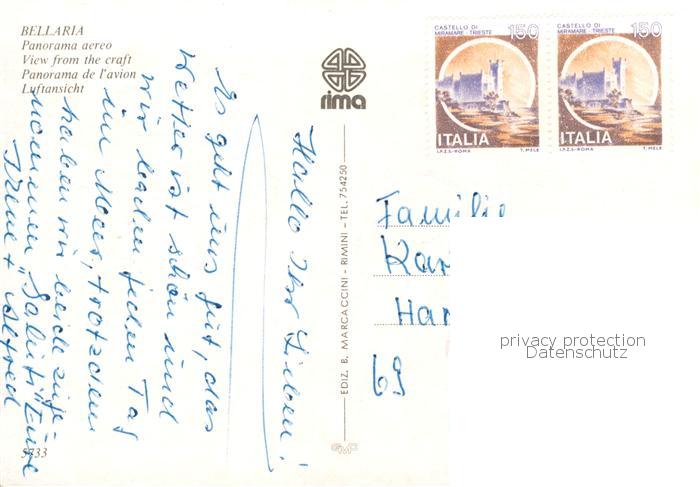 BELLARIA
Panorama aereo
View from the craft
Panorama de l'avion
Luftansicht
rima
CASTELLO DI
MIRAMARE - TRIESTE
150
ITALIA
I.P.Z.S.-ROMA T. MELE
CASTELLO DI
MIRAMARE - TRIESTE
150
ITALIA
I.P.Z.S.-ROMA T. MELE
Hallo Ihr Lieben!
Es geht uns gut, das
Wetter ist schön und
wir baden jeden Tag
im Meer, trotzdem
haben wir beide zuge-
nommen. "Saluti" Eure
Irene + Alfred
EDIZ. B. MARCACCINI - RIMINI - TEL. 754250
Familie
Kar
Har
69
privacy protection
Datenschutz
5733